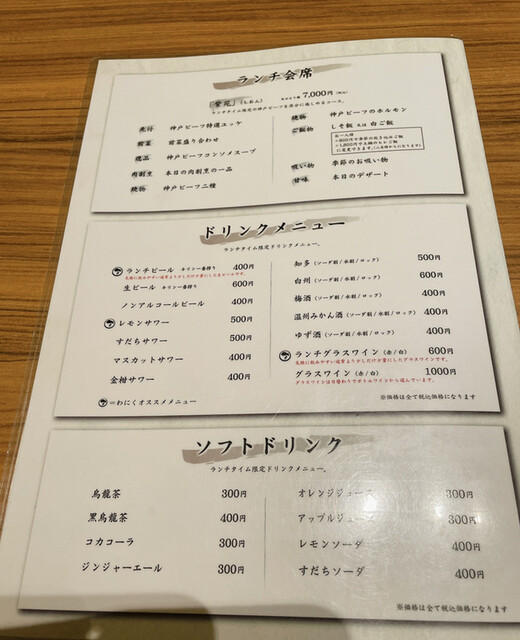 ランチ会席
「紫苑」(しおん) 7,000円(税込)
ランチタイム限定の神戸ビーフを存分に愉しめるコース。
先付 神戸ビーフ特選ユッケ
前菜 前菜盛り合わせ
逸品 神戸ビーフコンソメスープ
肉割烹 本日の肉割烹の一品
焼物 神戸ビーフ二種
焼物 神戸ビーフのホルモン
ご飯物 しそ飯 又は 白ご飯
お一人様
吸い物 季節のお吸い物
甘味 本日のデザート
ドリンクメニュー
ランチタイム限定ドリンクメニュー。
ランチビール キリン一番搾り 400円
生ビール キリン一番搾り 600円
ノンアルコールビール 400円
レモンサワー 500円
すだちサワー 500円
マスカットサワー 400円
金柑サワー 400円
=わにくオススメメニュー
知多(ソーダ割/水割/ロック) 500円
白州(ソーダ割/水割/ロック) 600円
梅酒(ソーダ割/水割/ロック) 400円
温州みかん酒(ソーダ割/水割/ロック) 400円
ゆず酒(ソーダ割/水割/ロック) 400円
ランチグラスワイン(赤/白) 600円
気軽に飲みやすい通常より少しだけ少量にしたグラスワインです。
グラスワイン(赤/白) 1000円
グラスワインは日替わりでボトルワインから選んでいます。
※価格は全て税込価格になります
ソフトドリンク
ランチタイム限定ドリンクメニュー。
烏龍茶 300円
黒烏龍茶 400円
コカコーラ 300円
ジンジャーエール 300円
オレンジジュース 300円
アップルジュース 300円
レモンソーダ 400円
すだちソーダ 400円
※価格は全て税込価格になります